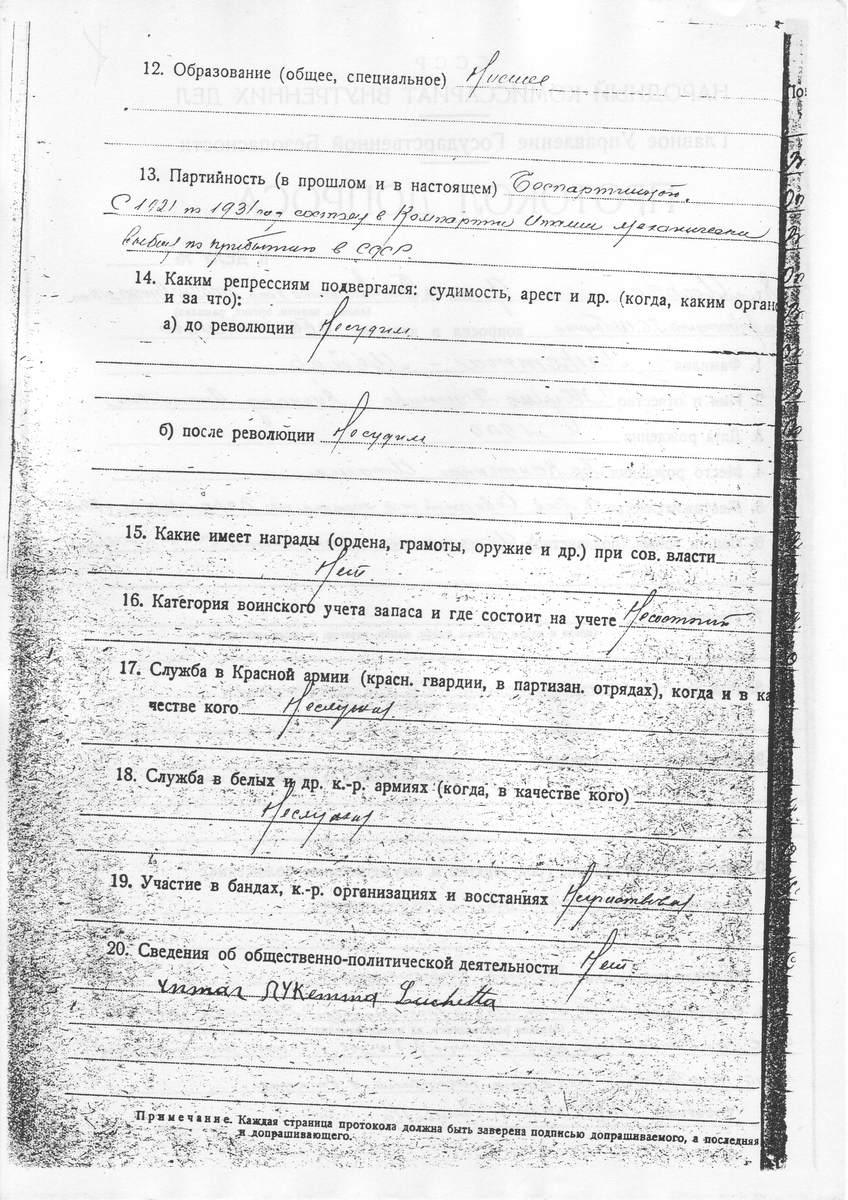 12. Образование (общее, специальное) Низшее
13. Партийность (в прошлом и в настоящем) Беспартийный.
С 1921 по 1931 год состоял в Компартии Италии механически
выбыл по прибытию в СССР.
14. Каким репрессиям подвергался: судимость, арест и др. (когда, каким орган
и за что):
а) до революции Несудим
б) после революции Несудим
15. Какие имеет награды (ордена, грамоты, оружие и др.) при сов. власти
Нет.
16. Категория воинского учета запаса и где состоит на учете
17. Служба в Красной армии (красн. гвардии, в партизан. отрядах), когда и в ка
честве кого Неслужил.
18. Служба в белых и др. к.-р. армиях (когда, в качестве кого)
Неслужил
19. Участие в бандах, к.-р. организациях и восстаниях
20. Сведения об общественно-политической деятельности Нет.
Luchetta
Примечание. Каждая страница протокола должна быть заверена подписью допрашиваемого, а последняя
и допрашивающего.